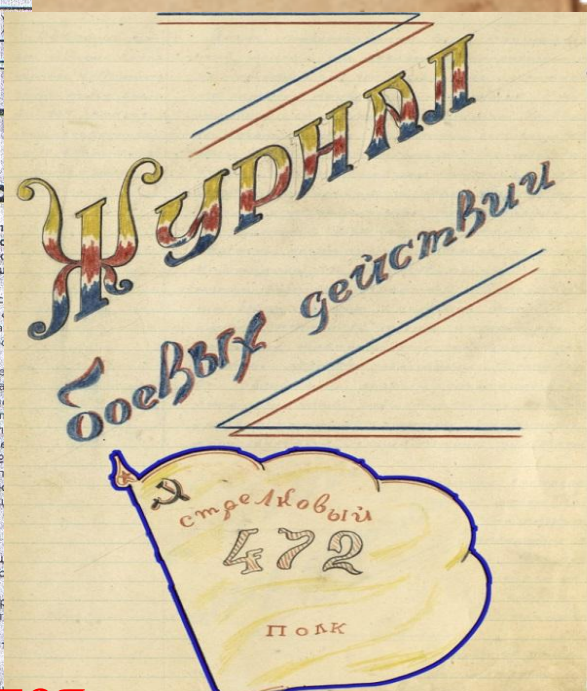 Журнал
боевых действии
стрелковый
472
полк